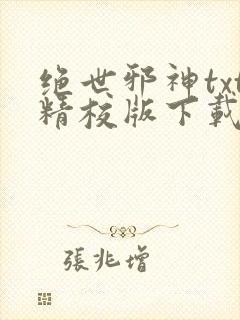 绝世邪神txt
精校版下载
張兆增